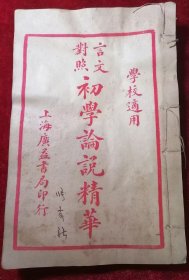 學校適用
言文對照
初學論説精華
上海廣益書局印行